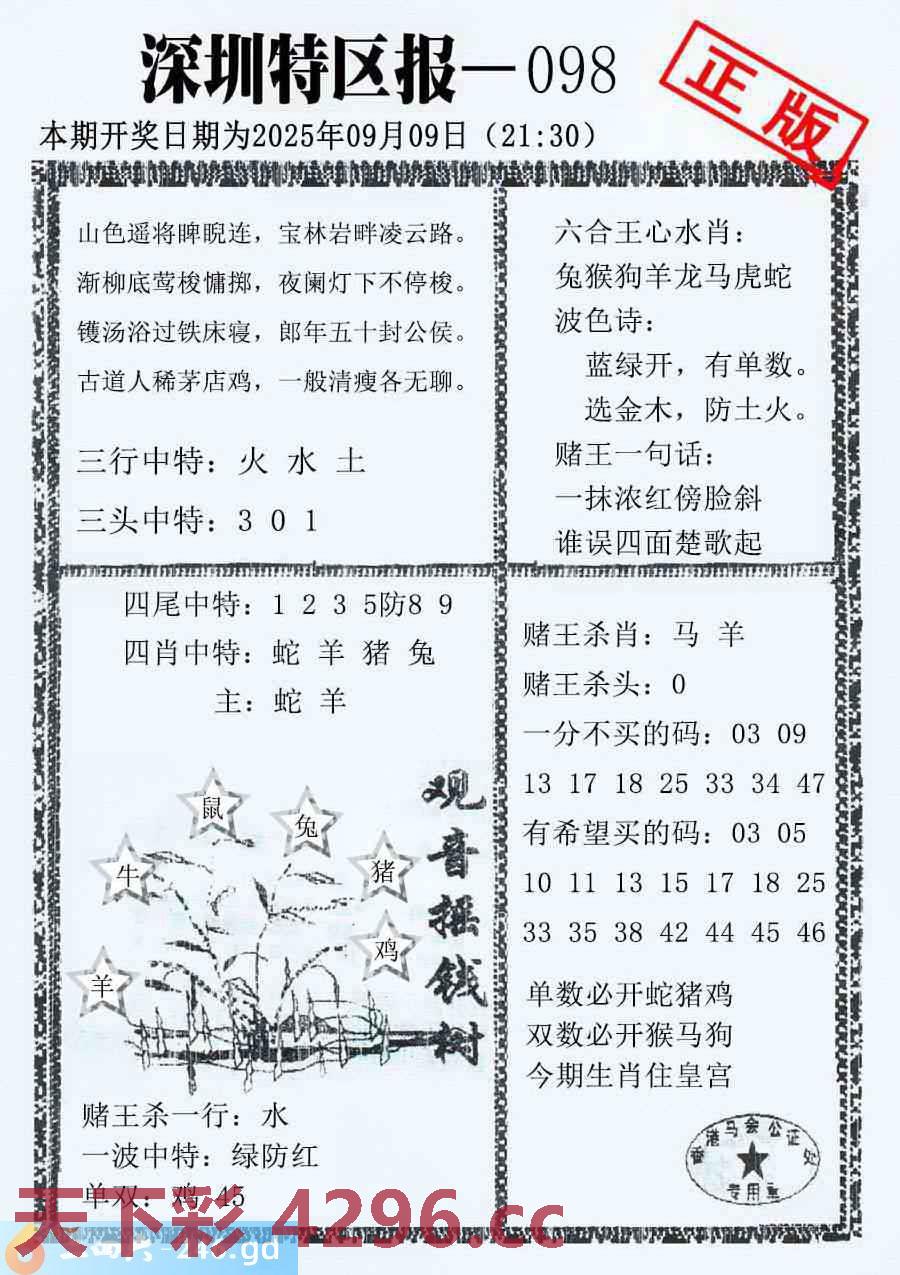 深圳特区报—098
正版
本期开奖日期为2025年09月09日（21:30）
山色遥将睥睨连，宝林岩畔凌云路。
渐柳底莺梭慵掷，夜阑灯下不停梭。
镬汤浴过铁床寝，郎年五十封公侯。
古道人稀茅店鸡，一般清瘦各无聊。
三行中特：火 水 土
三头中特：3 0 1
六合王心水肖：
兔猴狗羊龙马虎蛇
波色诗：
蓝绿开，有单数。
选金木，防土火。
赌王一句话：
一抹浓红傍脸斜
谁误四面楚歌起
四尾中特：1 2 3 5防8 9
四肖中特：蛇 羊 猪 兔
主：蛇 羊
观音摇钱树
鼠
兔
牛
猪
鸡
羊
赌王杀一行：水
一波中特：绿防红
单双：鸡 45
赌王杀肖：马 羊
赌王杀头：0
一分不买的码：03 09
13 17 18 25 33 34 47
有希望买的码：03 05
10 11 13 15 17 18 25
33 35 38 42 44 45 46
单数必开蛇猪鸡
双数必开猴马狗
今期生肖住皇宫
香港马会公证处
专用章
天下彩 4296.cc
-247.gd